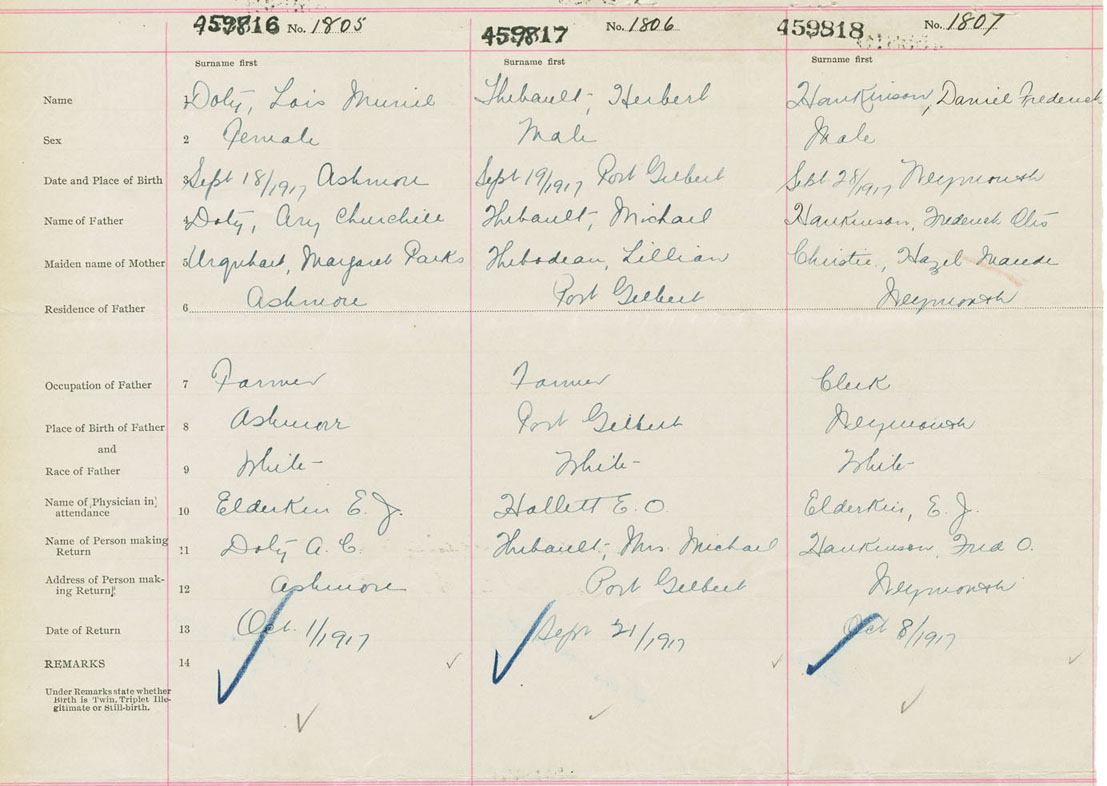 459816 No. 1805 459817 No. 1806 459818 No. 1807
Surname first Surname first Surname first
Name 1 Doty, Lois Muriel Thibault, Herbert Hankinson, Daniel Frederick
Sex 2 Female Male Male
Date and Place of Birth 3 Sept 18/1917 Ashmore Sept 19/1917 Port Gilbert Sept 28/1917 Weymouth
Name of Father 4 Doty, Ary Churchill Thibault, Michael Hankinson, Frederick Otis
Maiden name of Mother 5 Urquhart, Margaret Parks Thibodeau, Lillian Christie, Hazel Maude
Residence of Father 6 Ashmore Port Gilbert Weymouth
Occupation of Father 7 Farmer Farmer Clerk
Place of Birth of Father 8 Ashmore Port Gilbert Weymouth
and
Race of Father 9 White White White
Name of Physician in
attendance 10 Elderkin E. J. Hallett E. O. Elderkin, E. J.
Name of Person making
Return 11 Doty A. C. Thibault, Mrs. Michael Hankinson, Fred O.
Address of Person mak-
ing Return 12 Ashmore Port Gilbert Weymouth
Date of Return 13 Oct. 1/1917 Sept 21/1917 Oct 8/1917
REMARKS 14
Under Remarks state whether
Birth is Twin, Triplet Ille-
gitimate or Still-birth.